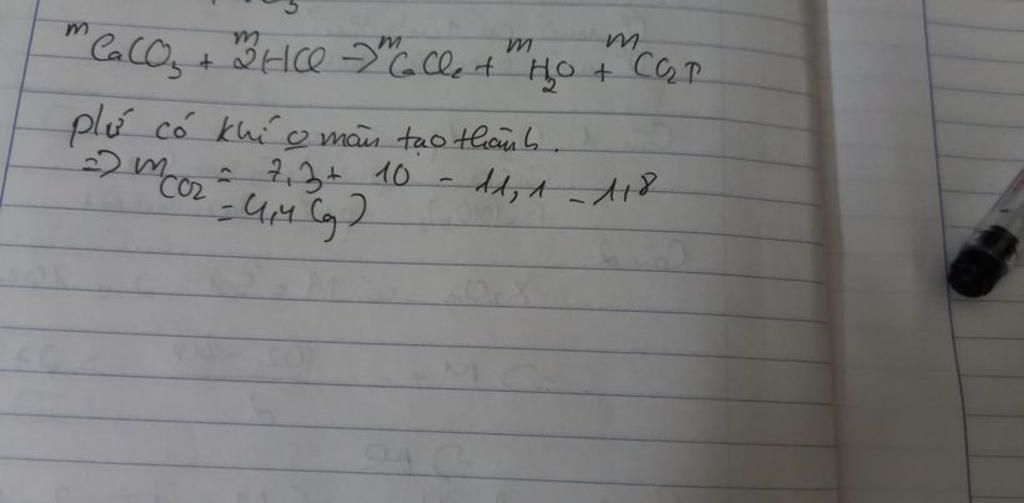 m CaCO₃ + m 2HCl → m CaCl₂ + m H₂O + m CO₂↑
pứ có khí o màu tạo thành.
=> m CO₂ = 7,3 + 10 - 11,1 - 1,8
= 4,4 (g)